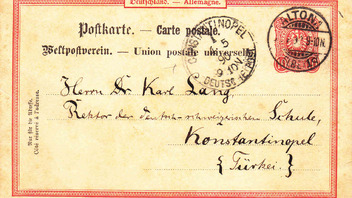 Deutschland. — Allemagne.
Postkarte. — Carte postale.
Weltpostverein. — Union postale universelle.
CONSTANTINOPEL
5
DEUTSCHE
Nur für die Adresse.
Côté réservé à l'adresse.
Herrn Dr. Karl Lang
Rektor der deutsch-schweizerischen Schule,
Konstantinopel
(Türkei).